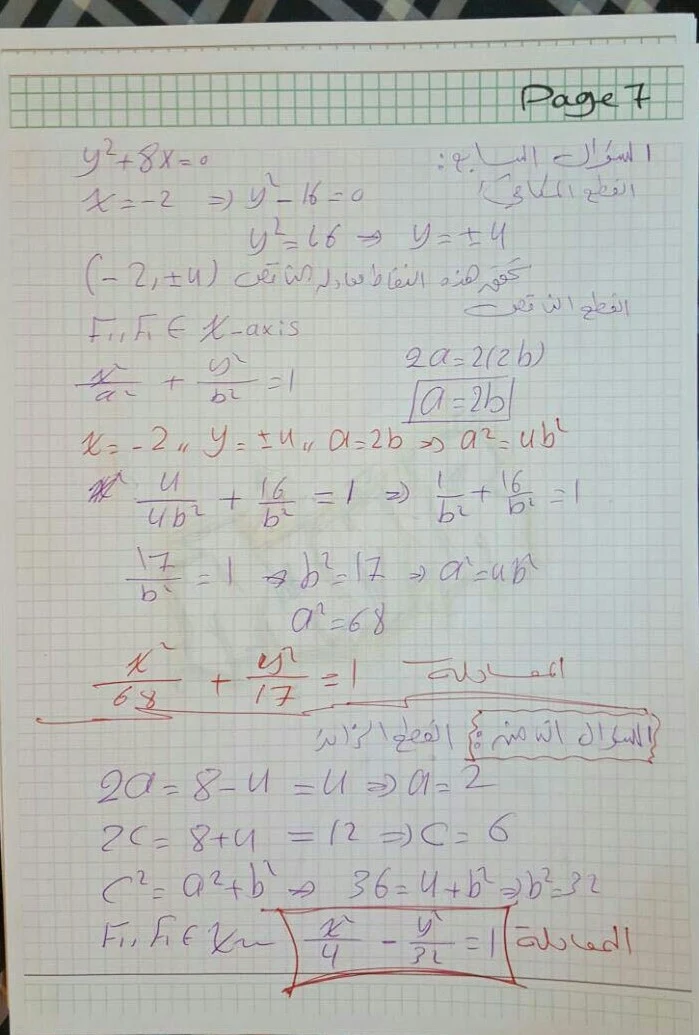 Page 7
السؤال السابع:
y²+8x=0
القطع المكافئ
x=-2 ⇒ y²-16=0
y²=16 ⇒ y=±4
(-2,±4) تحقق هذه النقاط معادلة الناقص
القطع الناقص
F₁,F₂ ∈ X-axis
x²/a² + y²/b² =1
2a=2(2b)
a=2b
x=-2 ,, y=±4 ,, a=2b ⇒ a²=4b²
4/4b² + 16/b² =1 ⇒ 1/b² + 16/b² =1
17/b² =1 ⇒ b²=17 ⇒ a²=4b²
a²=68
x²/68 + y²/17 =1 المعادلة
السؤال الثامن: القطع الزائد
2a=8-4=4 ⇒ a=2
2c=8+4=12 ⇒ c=6
c²=a²+b² ⇒ 36=4+b² ⇒ b²=32
F₁,F₂ ∈ X x²/4 - y²/32 =1 المعادلة